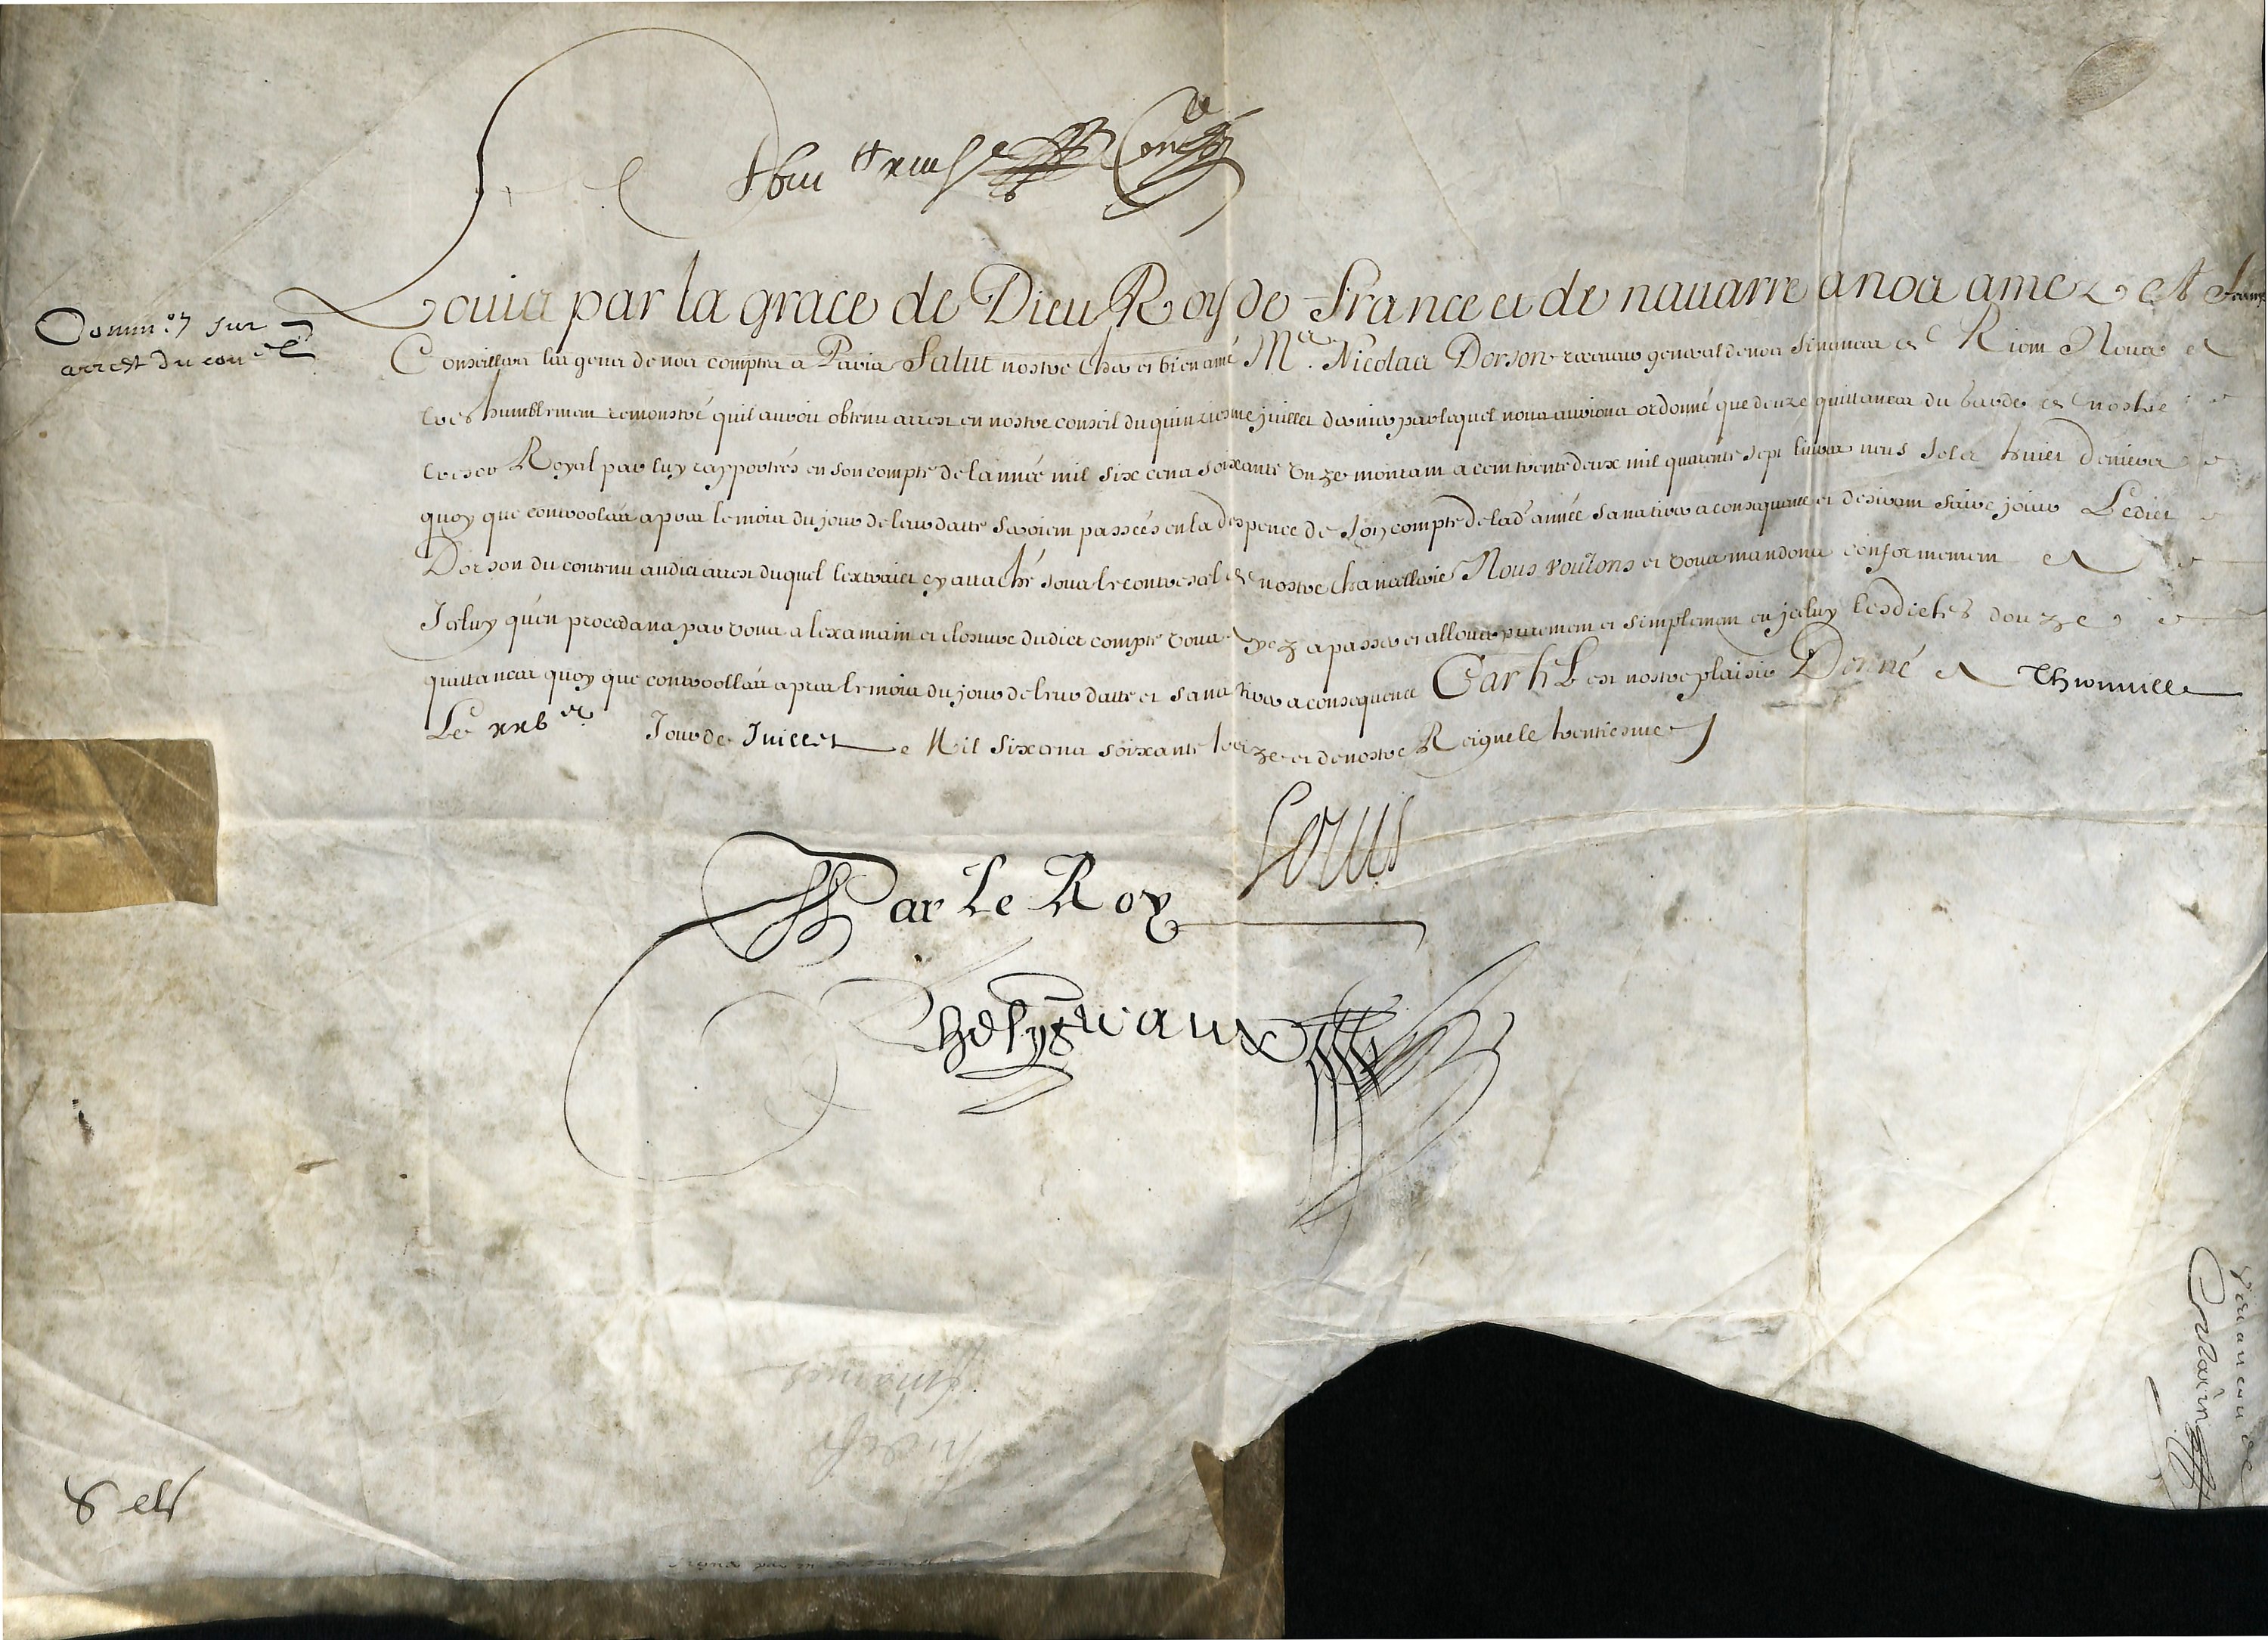 Comm.on sur
arrest du con.el
Louis par la grace de Dieu Roy de France et de nauarre a nos amez et feaux
Conseillers les gens de nos comptes a Paris Salut nostre cher et bien amé Me. Nicolas Dorson receueur general de nos finances de Riom Nous a
tres humblement remonstré quil auroit obtenu arrest en nostre conseil du quinziesme juillet dernier par lequel nous aurions ordonné que douze quittances du garde de nostre
tresor Royal par luy rapportées en son compte de lannée mil six cens soixante unze montant a cent trente deux mil quarante sept liures neuf sols huict deniers
quoy que controolées apres le mois du jour de leur datte seroient passées en la despence de son compte de lad. année sans tirer a consequence et desirant faire jouir Ledict
Dorson du contenu audict arrest duquel lextraict cy attaché soubs le contrescel de nostre chancellerie Nous voulons et vous mandons conformement a
Iceluy quen procedans par vous a lexamain et closture dudict compte vous ayez a passer et allouer purement et simplement en jceluy lesdictes douze
quittances quoy que controollées apres le mois du jour de leur datte et sans tirer a consequence Car tel est nostre plaisir Donné a Thionuille
Le xxv.e Jour de Juillet Mil six cens soixante treize et de nostre Reigne le trentiesme
Louis
Par Le Roy
Phelypeaux